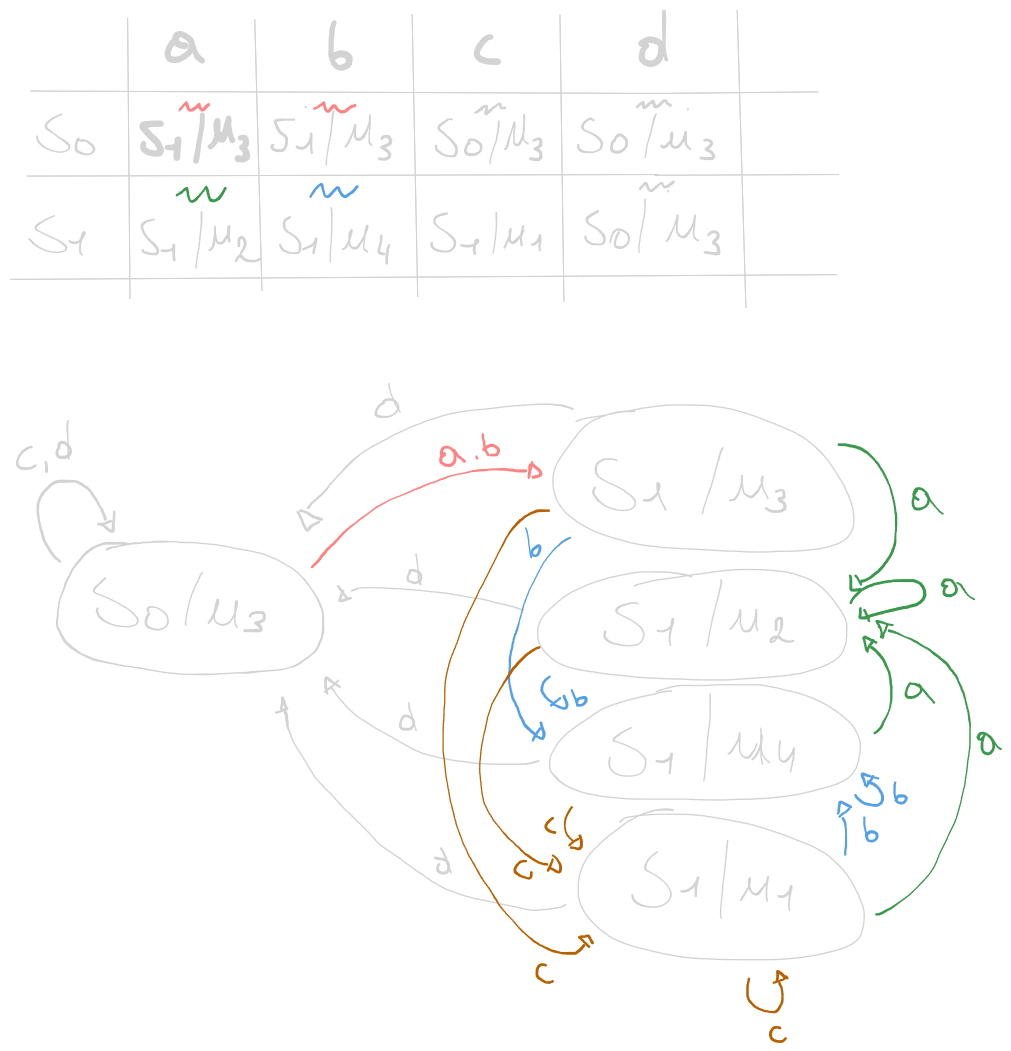 a b c d
S0 S1/μ3 S1/μ3 S0/μ3 S0/μ3
S1 S1/μ2 S1/μ4 S1/μ1 S0/μ3
d
c,d
a.b
S1/μ3
a
b
d
a
S0/μ3
S1/μ2
b
a
d
S1/μ4
a
b
c
b
d
c
S1/μ1
c
c